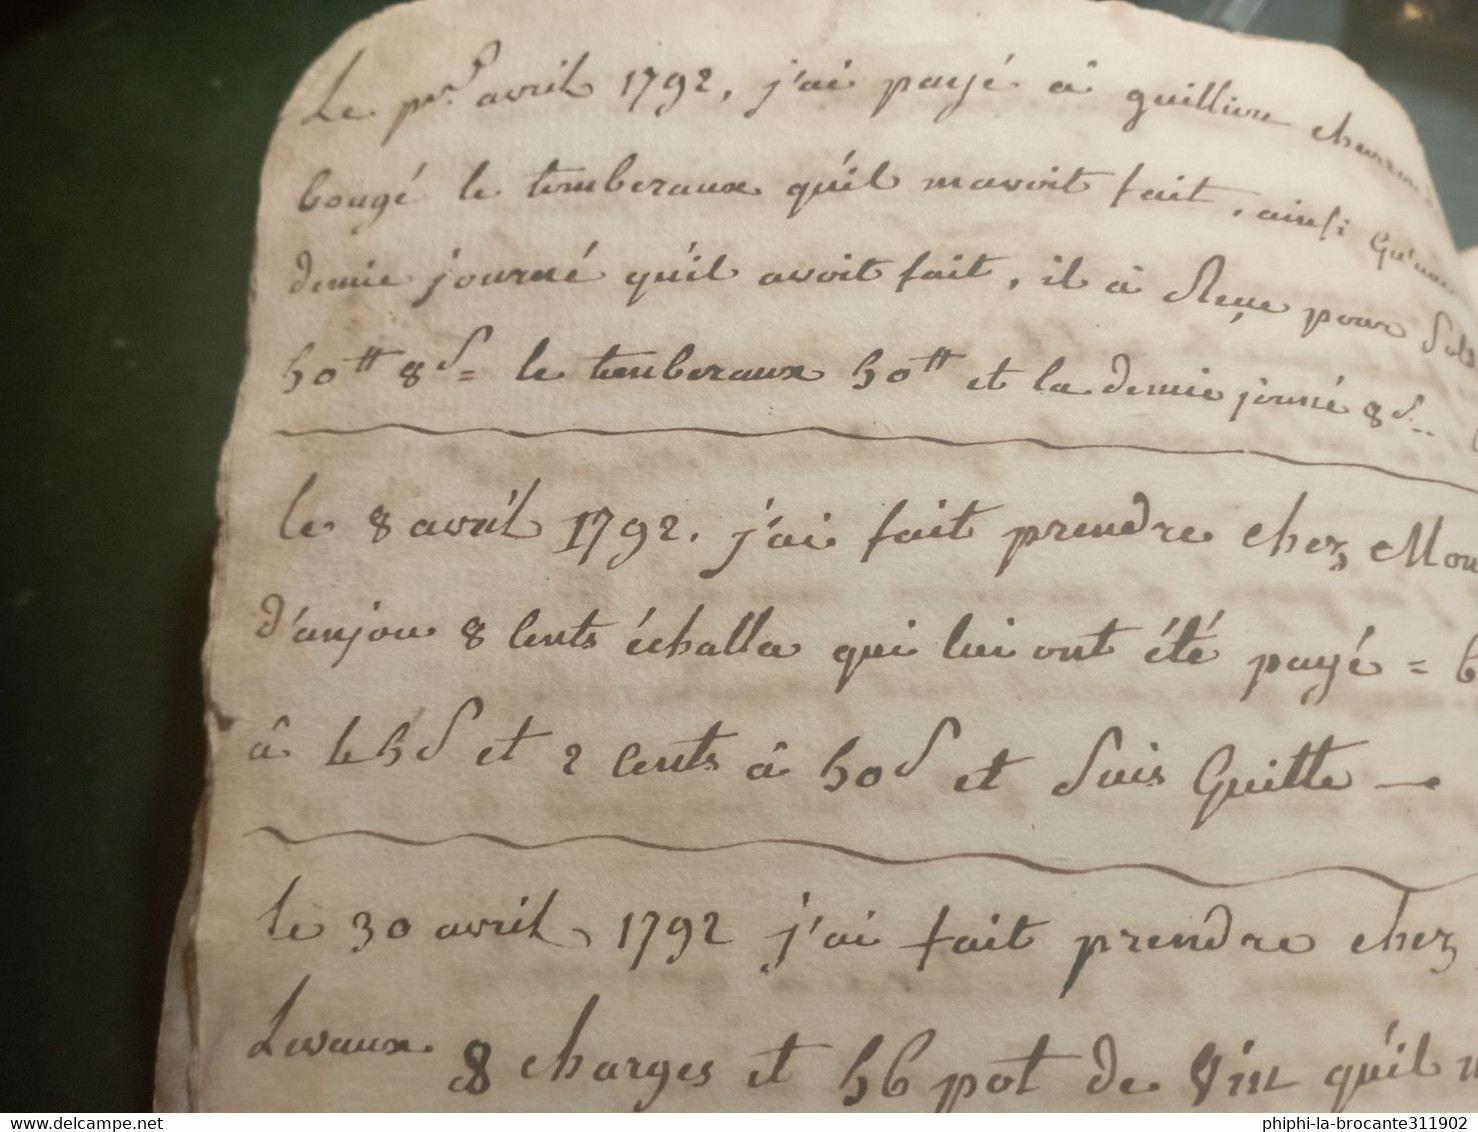 Le pr. avril 1792, j'ai payé à guillion
bougé le tomberaux qu'il mavoit fait, ainsi Qu'une
demie journé qu'il avoit fait, il à Reçue pour Sold
50tt 8s = le tomberaux 50tt et la demie journé 8s..
le 8 avril 1792. j'ai fait prendre chez Mon
d'anjou 8 Cents échalla qui lui ont été payé = 6
à 45s et 2 Cents à 50s et Suis Quitte —
le 30 avril 1792 j'ai fait prendre chez
Levaux 8 charges et 56 pot de Vin qu'il
phiphi-la-brocante311902